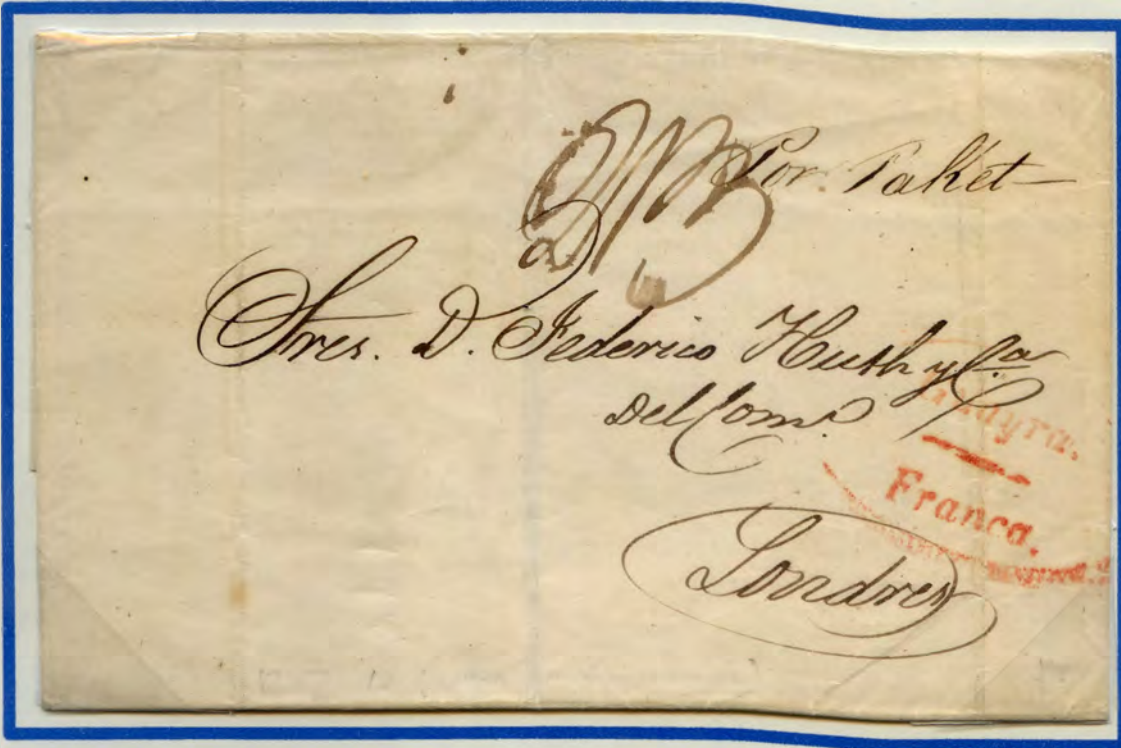 Por Paket
Sres. D. Federico Huth y Cª
Del Comº
Guayra.
Franca.
Londres